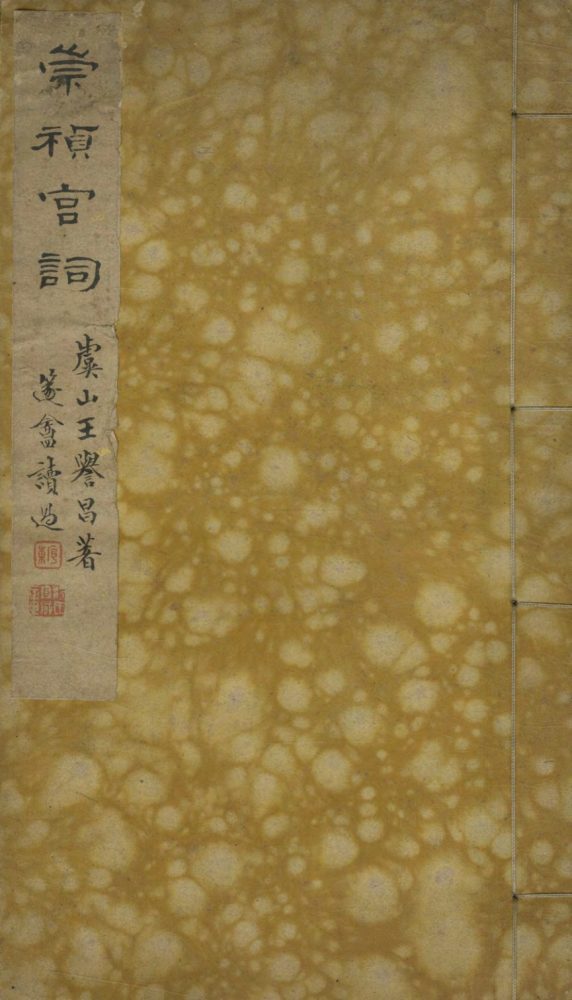 崇禎宮詞
虞山王譽昌著
讀過